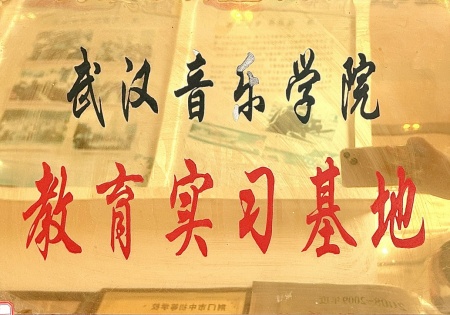 武汉音乐学院
教育实习基地